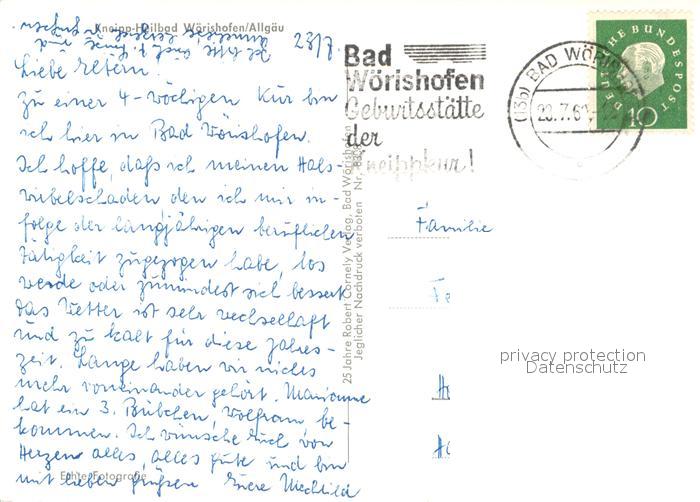 Kneipp-Heilbad Wörishofen/Allgäu
23/7.
Liebe Eltern!
Zu einer 4-wöchigen Kur bin
ich hier in Bad Wörishofen.
Ich hoffe, daß ich meinen Hals-
wirbelschaden den ich mir in-
folge der langjährigen beruflichen
Tätigkeit zugezogen habe, los
werde oder zumindest sich bessert
das Wetter ist sehr wechselhaft
und zu kalt für diese Jahres-
zeit. Lange haben wir nichts
mehr voneinander gehört. Marianne
hat ein 3. Bübchen, Wolfram, be-
kommen. Ich wünsche Euch von
Herzen alles, alles Gute und bin
mit lieben Grüßen Eure Mechtild
Echte Fotografie
25 Jahre Robert Cornely Verlag, Bad Wörishofen
Jeglicher Nachdruck verboten
Bad
Wörishofen
Geburtsstätte
der
Kneippkur!
(13b) BAD WÖRISHOFEN
23.7.6
DEUTSCHE BUNDESPOST
10
Familie
privacy protection
Datenschutz